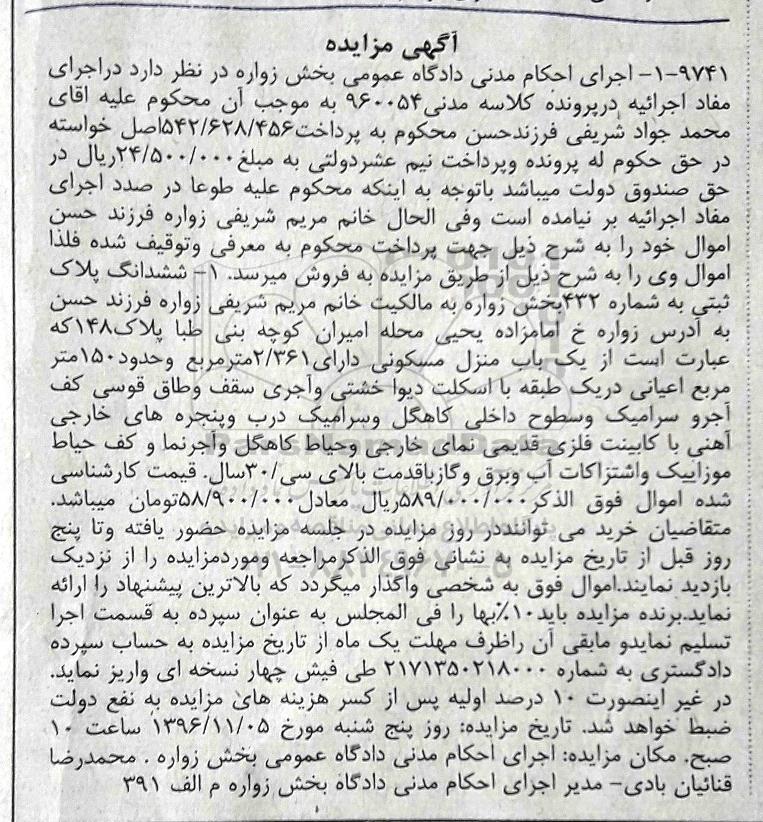 آگهی مزایده
۹۷۴۱-۱- اجرای احکام مدنی دادگاه عمومی بخش زواره در نظر دارد دراجرای
مفاد اجرائیه درپرونده کلاسه مدنی۹۶۰۰۵۴ به موجب آن محکوم علیه اقای
محمد جواد شریفی فرزندحسن محکوم به پرداخت۵۴۲/۶۲۸/۴۵۶اصل خواسته
در حق حکوم له پرونده وپرداخت نیم عشردولتی به مبلغ۲۴/۵۰۰/۰۰۰ریال در
حق صندوق دولت میباشد باتوجه به اینکه محکوم علیه طوعا در صدد اجرای
مفاد اجرائیه بر نیامده است وفی الحال خانم مریم شریفی زواره فرزند حسن
اموال خود را به شرح ذیل جهت پرداخت محکوم به معرفی وتوقیف شده فلذا
اموال وی را به شرح ذیل از طریق مزایده به فروش میرسد. ۱- ششدانگ پلاک
ثبتی به شماره ۴۳۲بخش زواره به مالکیت خانم مریم شریفی زواره فرزند حسن
به آدرس زواره خ امامزاده یحیی محله امیران کوچه بنی طبا پلاک۱۴۸که
عبارت است از یک باب منزل مسکونی دارای۲/۳۶۱مترمربع وحدود۱۵۰متر
مربع اعیانی دریک طبقه با اسکلت دیوا خشتی وآجری سقف وطاق قوسی کف
آجرو سرامیک وسطوح داخلی کاهگل وسرامیک درب وپنجره های خارجی
آهنی با کابینت فلزی قدیمی نمای خارجی وحیاط کاهگل وآجرنما و کف حیاط
موزاییک واشتزاکات آب وبرق وگازباقدمت بالای سی/۳۰سال. قیمت کارشناسی
شده اموال فوق الذکر۵۸۹/۰۰۰/۰۰۰ریال معادل۵۸/۹۰۰/۰۰۰تومان میباشد.
متقاضیان خرید می توانند‌در روز مزایده در جلسه مزایده حضور یافته وتا پنج
روز قبل از تاریخ مزایده به نشانی فوق الذکرمراجعه وموردمزایده را از نزدیک
بازدید نمایند.اموال فوق به شخصی واگذار میگردد که بالاترین پیشنهاد را ارائه
نماید.برنده مزایده باید۱۰٪بها را فی المجلس به عنوان سپرده به قسمت اجرا
تسلیم نمایدو مابقی آن راظرف مهلت یک ماه از تاریخ مزایده به حساب سپرده
دادگستری به شماره ۲۱۷۱۳۵۰۲۱۸۰۰۰ طی فیش چهار نسخه ای واریز نماید.
در غیر اینصورت ۱۰ درصد اولیه پس از کسر هزینه های مزایده به نفع دولت
ضبط خواهد شد. تاریخ مزایده: روز پنج شنبه مورخ ۱۳۹۶/۱۱/۰۵ ساعت ۱۰
صبح. مکان مزایده: اجرای احکام مدنی دادگاه عمومی بخش زواره . محمدرضا
قنائیان بادی- مدیر اجرای احکام مدنی دادگاه بخش زواره م الف ۳۹۱